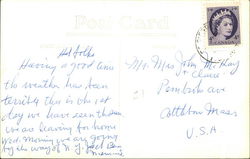 Post Card
Hi folks
Having a good time
the weather has been
terrible this is the 1st
day we have seen the sun
we are leaving for home
Wed. Morning we are going
by the way of N.Y.
Mr. & Mrs John M. Kay
Clare
Pembroke Ave
Attleboro Mass
U.S.A.